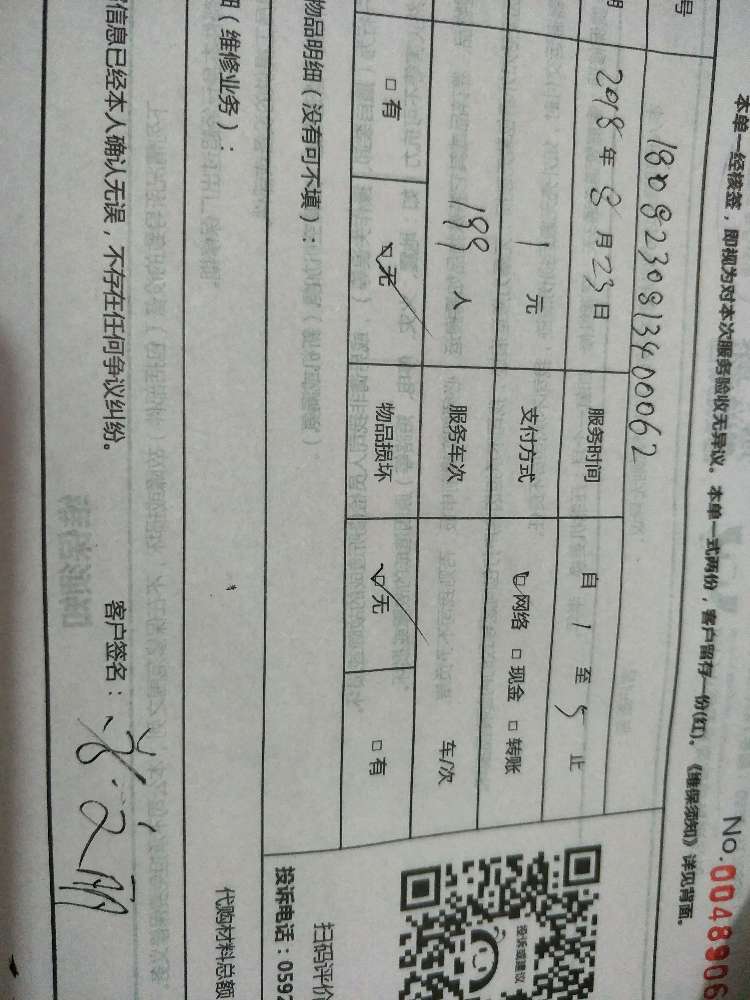 本单一经核签，即视为对本次服务验收无异议。本单一式两份，客户留存一份(红)。《维保须知》详见背面。
No.0048906
号
180823081340062
2018年8月23日
服务时间 自1至5止
1元
支付方式 网络 现金 转账
199人
服务车次 车/次
有 无
物品损坏 无 有
物品明细（没有可不填）：
细（维修业务）：
信息已经本人确认无误，不存在任何争议纠纷。
客户签名：
投诉或建议
扫码评价
投诉电话：0592
代购材料总额